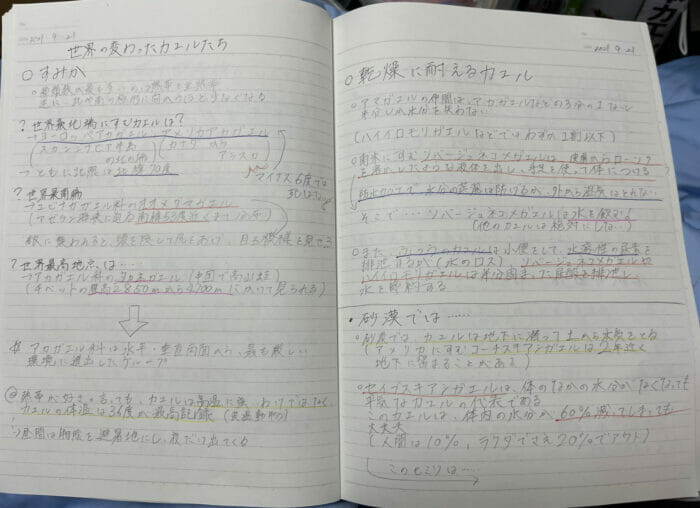 2021 9.21
世界の変わったカエルたち
○すみか
○種類数の最も多いのは熱帯と亜熱帯
逆に、北や南の極方に向かうほど少なくなる
? 世界最北端にすむカエルは?
→ヨーロッパアカガエル、アメリカアカガエル
(スカンジナビア半島の北の端) (カナダからアラスカ)
→ともに北限は北緯70度
マイナス6度では死なない
? 世界最南端
→ユビナガガエル科のオオメメクラガエル
(マゼラン海峡に迫る南緯53度近くまで分布)
敵に襲われると、頭を隠して尻をあげ、目玉模様を見せる
? 世界最高地点は…
→アカガエル科の タカネガエル (中国で高山蛙)
(チベットの標高2850mから4700mにかけて見られる)
アカガエル科は水平・垂直両面から、最も厳しい
環境に進出したグループ
@熱帯が好きと言っても、カエルは高温に強いわけではなく
カエルの体温は36度が最高記録 (変温動物)
→昼間は樹陰を避暑地にし、夜だけ出てくる
2021 9.21
○乾燥に耐えるカエル
○アマガエルの仲間は、アカガエルなどの3分の1ないし
半分しか水分を失わない
(ハイイロモリガエルなどではわずか1割以下)
○南米にすむソバージュネコメガエルは、皮膚からローソク
を溶かしたような液体を出し、手足を使って体につける
防水ロウで、水分の蒸散は防げるが、外から湿気はとれない
そこで…、ソバージュネコメガエルは水を飲む
(他のカエルは絶対にしない)
○また、ふつうのカエルは小便をして、水溶性の尿素を
排泄するが(水のロス)、ソバージュネコメガエルや
ハイイロモリガエルは半分固まった尿酸を排泄し、
水を節約する
・砂漠では……
○砂漠では、カエルは地下に潜って土から水気をとる
(アメリカにすむコーチスキアシガエルは2年近く
地下に留まることがある)
○セイブスキアシガエルは、体のなかの水分がなくなっても
平気なカエルの代表である
このカエルは、体内の水分が60%減ってしまっても
大丈夫
(人間は10%、ラクダでさえ20%でアウト)
このヒミツは……